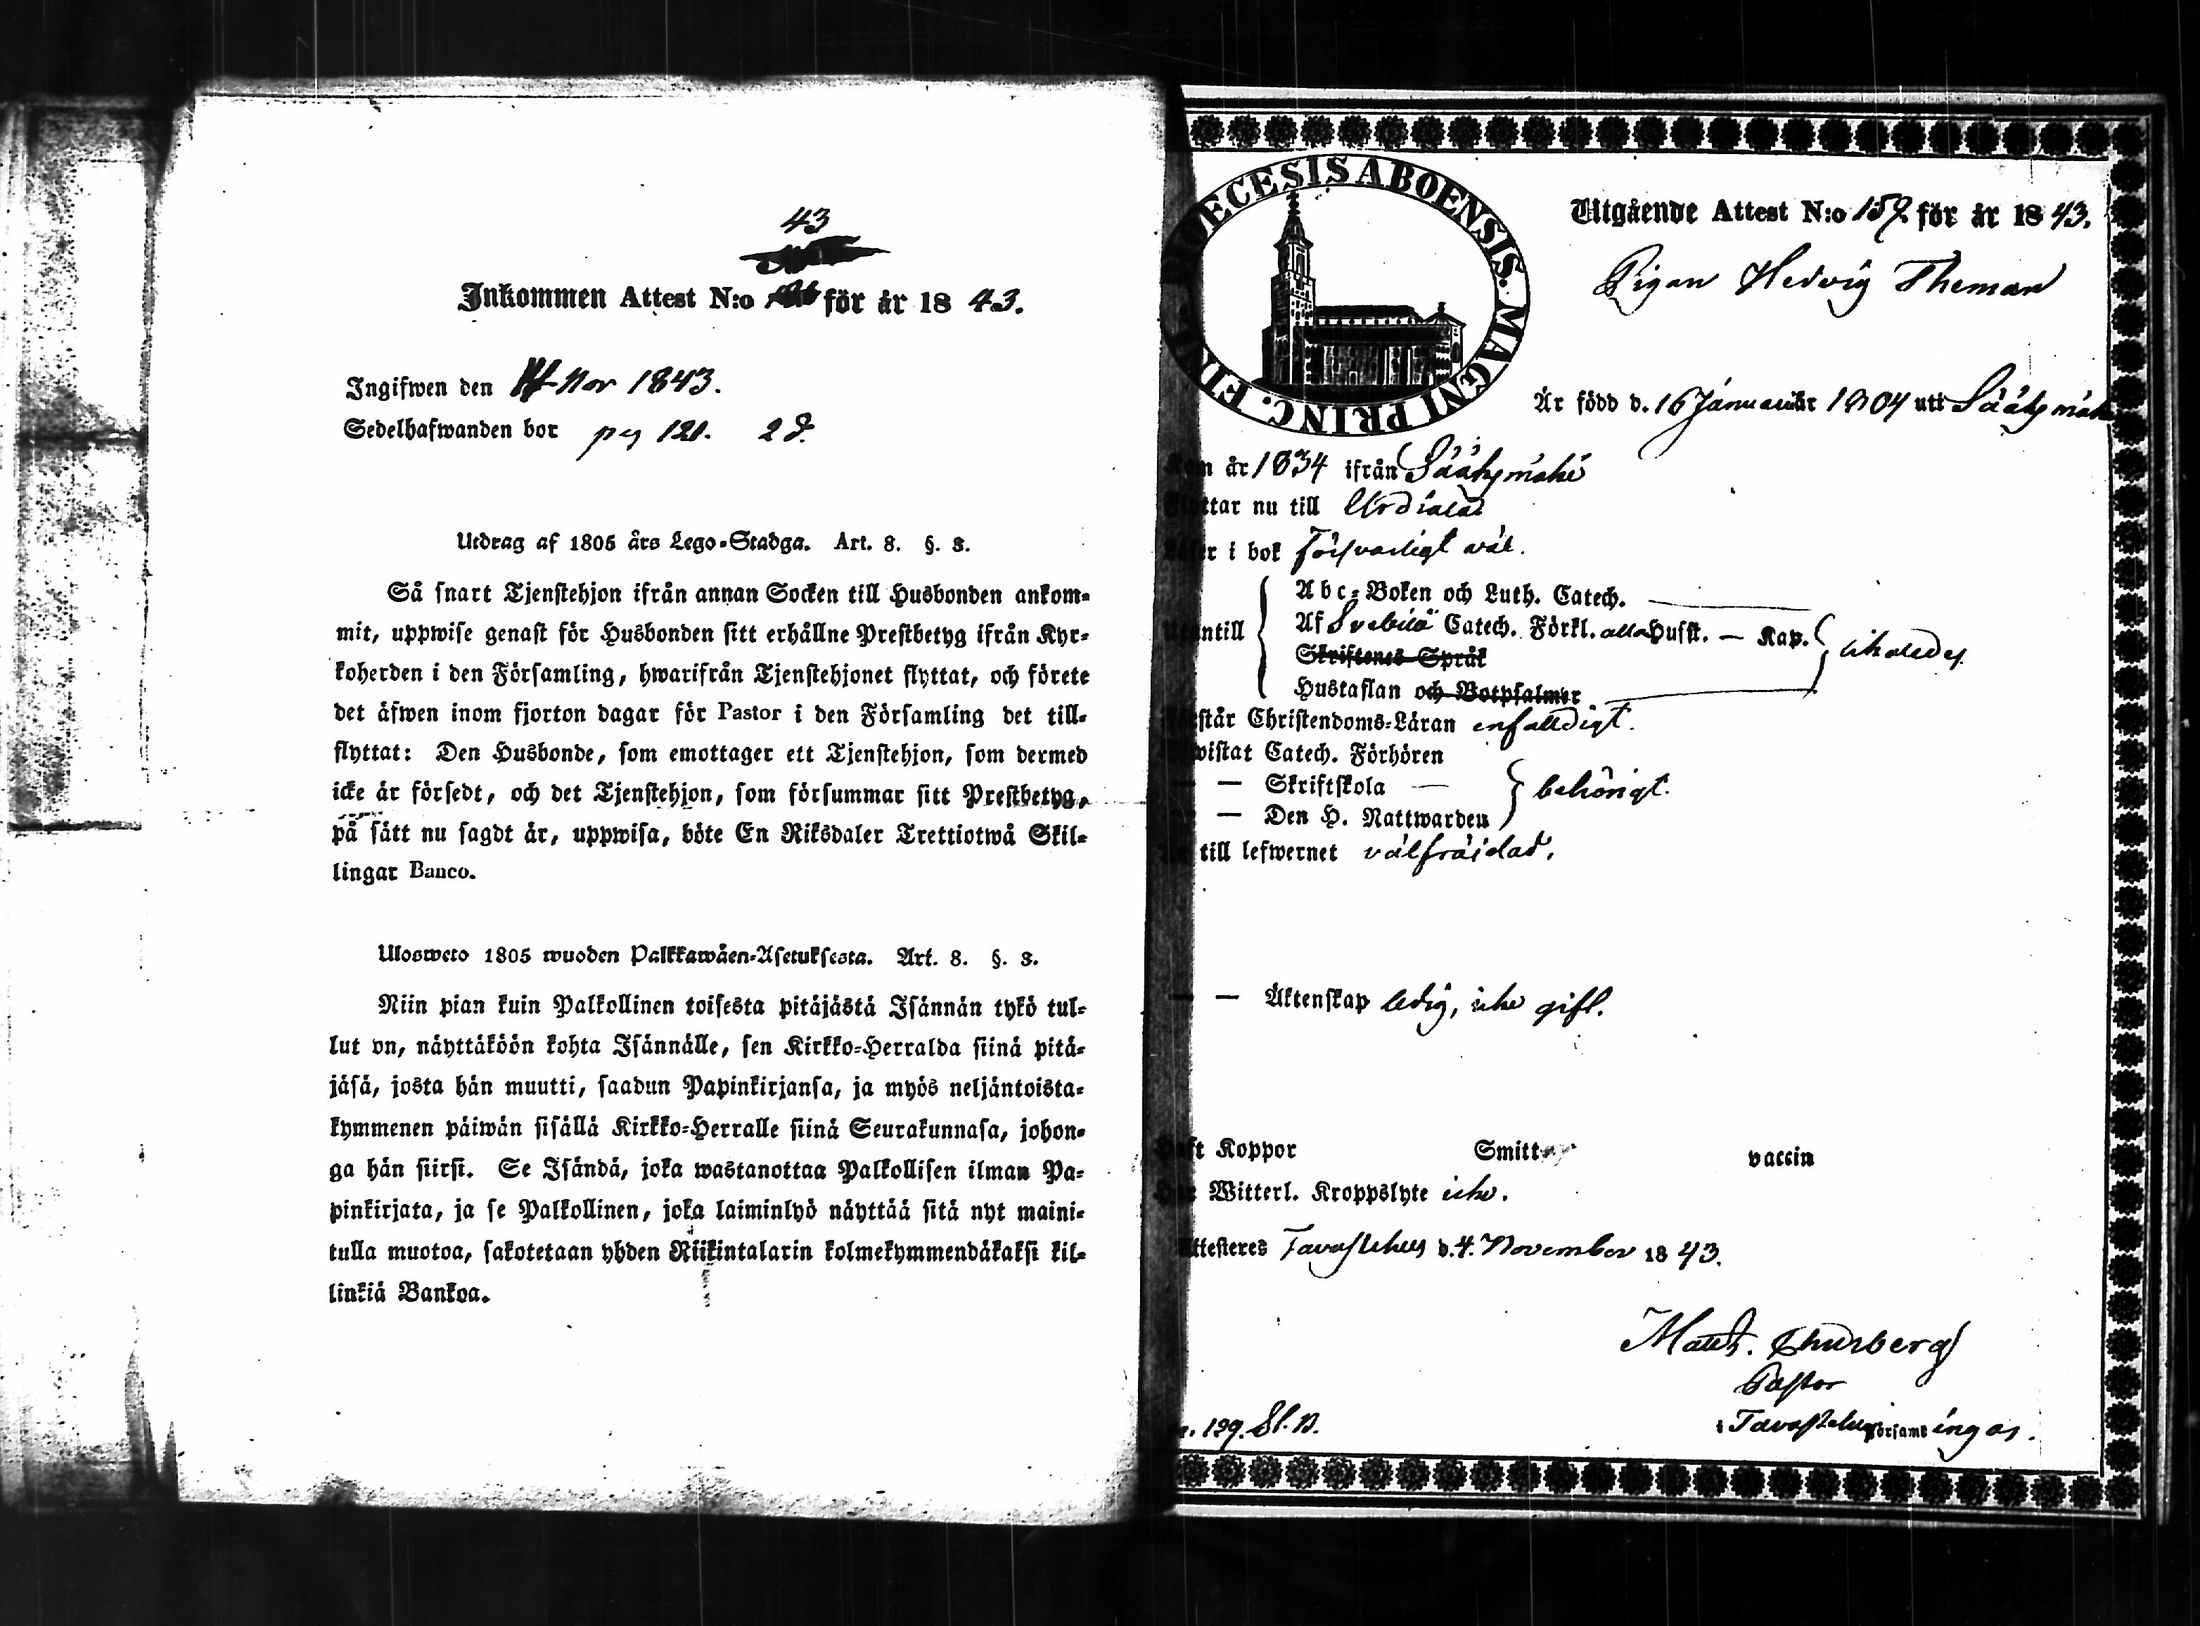 43
Inkommen Attest N:o för år 18 43.
Ingifwen den Nov 1843.
Sedelhafwanden bor pag 121. 2 d.
Utdrag af 1805 års Lego-Stadga. Art. 8. §. 3.
Så snart Tjenstehjon ifrån annan Socken till Husbonden ankom-
mit, uppwise genast för Husbonden sitt erhållne Prestbetyg ifrån Kyr-
koherden i den Församling, hwarifrån Tjenstehjonet flyttat, och förete
det äfwen inom fjorton dagar för Pastor i den Församling det till-
flyttat: Den Husbonde, som emottager ett Tjenstehjon, som dermed
icke är försedt, och det Tjenstehjon, som försummar sitt Prestbetyg,
på sätt nu sagdt är, uppwisa, böte En Riksdaler Trettiotwå Skil-
lingar Banco.
Ulosweto 1805 wuoden Palkkawäen-Asetuksesta. Art. 8. §. 3.
Niin pian kuin Palkollinen toisesta pitäjästä Isännän tykö tul-
lut on, näyttäköön kohta Isännälle, sen Kirkko-Herralda siinä pitä-
jäsä, josta hän muutti, saadun Papinkirjansa, ja myös neljäntoista-
kymmenen päiwän sisällä Kirkko-Herralle siinä Seurakunnasa, johon-
ga hän siirsi. Se Isändä, joka wastanottaa Palkollisen ilman Pa-
pinkirjata, ja se Palkollinen, joka laiminlyö näyttää sitä nyt maini-
tulla muotoa, sakotetaan yhden Riikintalarin kolmekymmendäkaksi kil-
linkiä Bankoa.
DIOECESIS ABOENSIS. MAGNI PRINC. FINL.
Utgående Attest N:o 159 för år 18 43.
Pigan Hedvig Theman
Är född d. 16 Januarii år 1804 uti Sääksmäki
år 1834 ifrån Sääksmäki
nu till Urdiala
i bok försvarligt väl.
Abc-Boken och Luth. Catech.
Af Svebilii Catech. Förkl. alla Hufst. — Kap.
Skriftenes Språk
Hustaflan och Botpsalmer
Christendoms-Läran enfaldigt.
Catech. Förhören
— — Skriftskola — behörigt.
— — Den H. Nattwarden
till lefwernet välfräjdad.
— — Äktenskap ledig, icke gift.
Koppor Smitt vaccin
Witterl. Kroppslyte icke.
Attesteres Tavastehus d. 4. November 18 43.
Matth. Thurberg
Pastor
i Tavastehus Församlingar.
129. Sl. B.